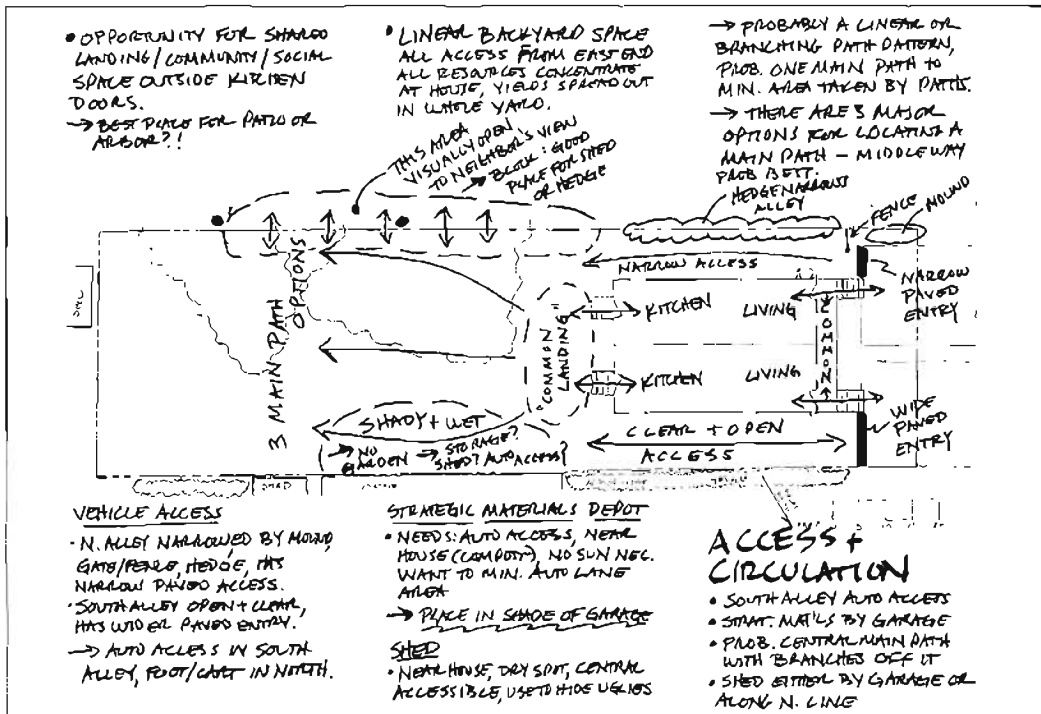 • OPPORTUNITY FOR SHARED
LANDING/COMMUNITY/SOCIAL
SPACE OUTSIDE KITCHEN
DOORS.
→ BEST PLACE FOR PATIO OR
ARBOR?!
• LINEAR BACKYARD SPACE
ALL ACCESS FROM EAST END
ALL RESOURCES CONCENTRATE
AT HOUSE, YIELDS SPREAD OUT
IN WHOLE YARD.
→ PROBABLY A LINEAR OR
BRANCHING PATH PATTERN,
PROB. ONE MAIN PATH TO
MIN. AREA TAKEN BY PATHS.
→ THERE ARE 3 MAJOR
OPTIONS FOR LOCATING A
MAIN PATH – MIDDLE WAY
PROB BETT.
THIS AREA
VISUALLY OPEN
TO NEIGHBOR'S VIEW
→ BLOCK: GOOD
PLACE FOR SHED
OR HEDGE
HEDGE NARROWS
ALLEY
FENCE
MOUND
NARROW ACCESS
NARROW
PAVED
ENTRY
SHED
3 MAIN PATH
OPTIONS
"COMMON
LANDING"
KITCHEN
KITCHEN
LIVING
LIVING
COMMON
WIDE
PAVED
ENTRY
SHADY + WET
→ NO
GARDEN
→ STORAGE?
SHED? AUTO ACCESS?
CLEAR + OPEN
ACCESS
SHED
VEHICLE ACCESS
• N. ALLEY NARROWED BY MOUND,
GATE/FENCE, HEDGE, HAS
NARROW PAVED ACCESS.
• SOUTH ALLEY OPEN + CLEAR,
HAS WIDER PAVED ENTRY.
→ AUTO ACCESS IN SOUTH
ALLEY, FOOT/CART IN NORTH.
STRATEGIC MATERIALS DEPOT
• NEEDS: AUTO ACCESS, NEAR
HOUSE (COMPOST), NO SUN NEC.
WANT TO MIN. AUTO LANE
AREA
→ PLACE IN SHADE OF GARAGE
SHED
• NEAR HOUSE, DRY SPOT, CENTRAL
ACCESSIBLE, USE TO HIDE UGLIES
ACCESS +
CIRCULATION
• SOUTH ALLEY AUTO ACCESS
• STRAT. MAT'LS BY GARAGE
• PROB. CENTRAL MAIN PATH
WITH BRANCHES OFF IT
• SHED EITHER BY GARAGE OR
ALONG N. LINE